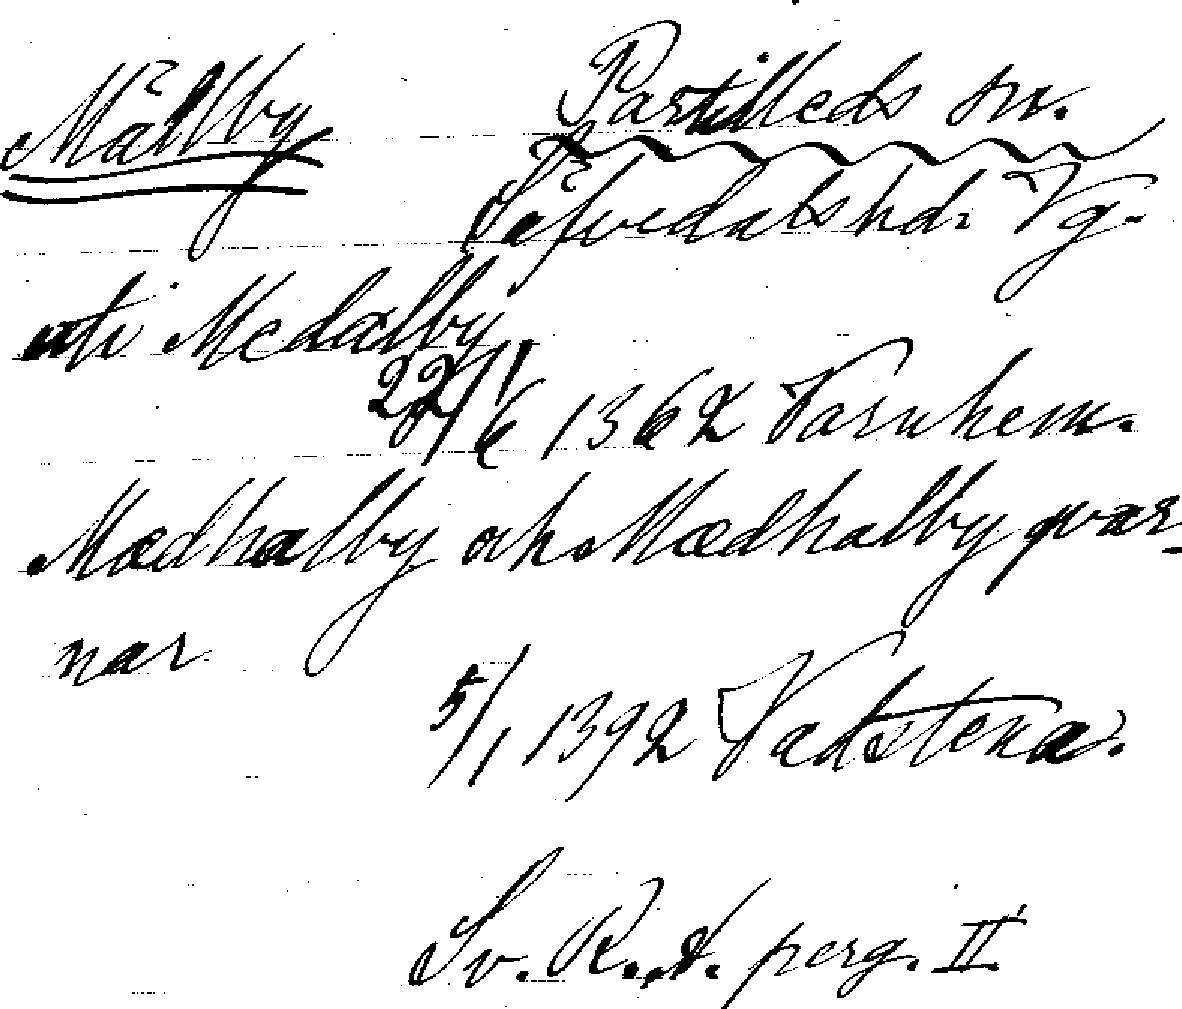 Mällby Partilleds sn.
Säfvedals hd. Vg.
uti Medalby
22/6 1362 Varnhem.
Mædhalby och Mædhalby qvar-
nar
5/1 1392 Vadstena.
Sv. R. A. perg. II